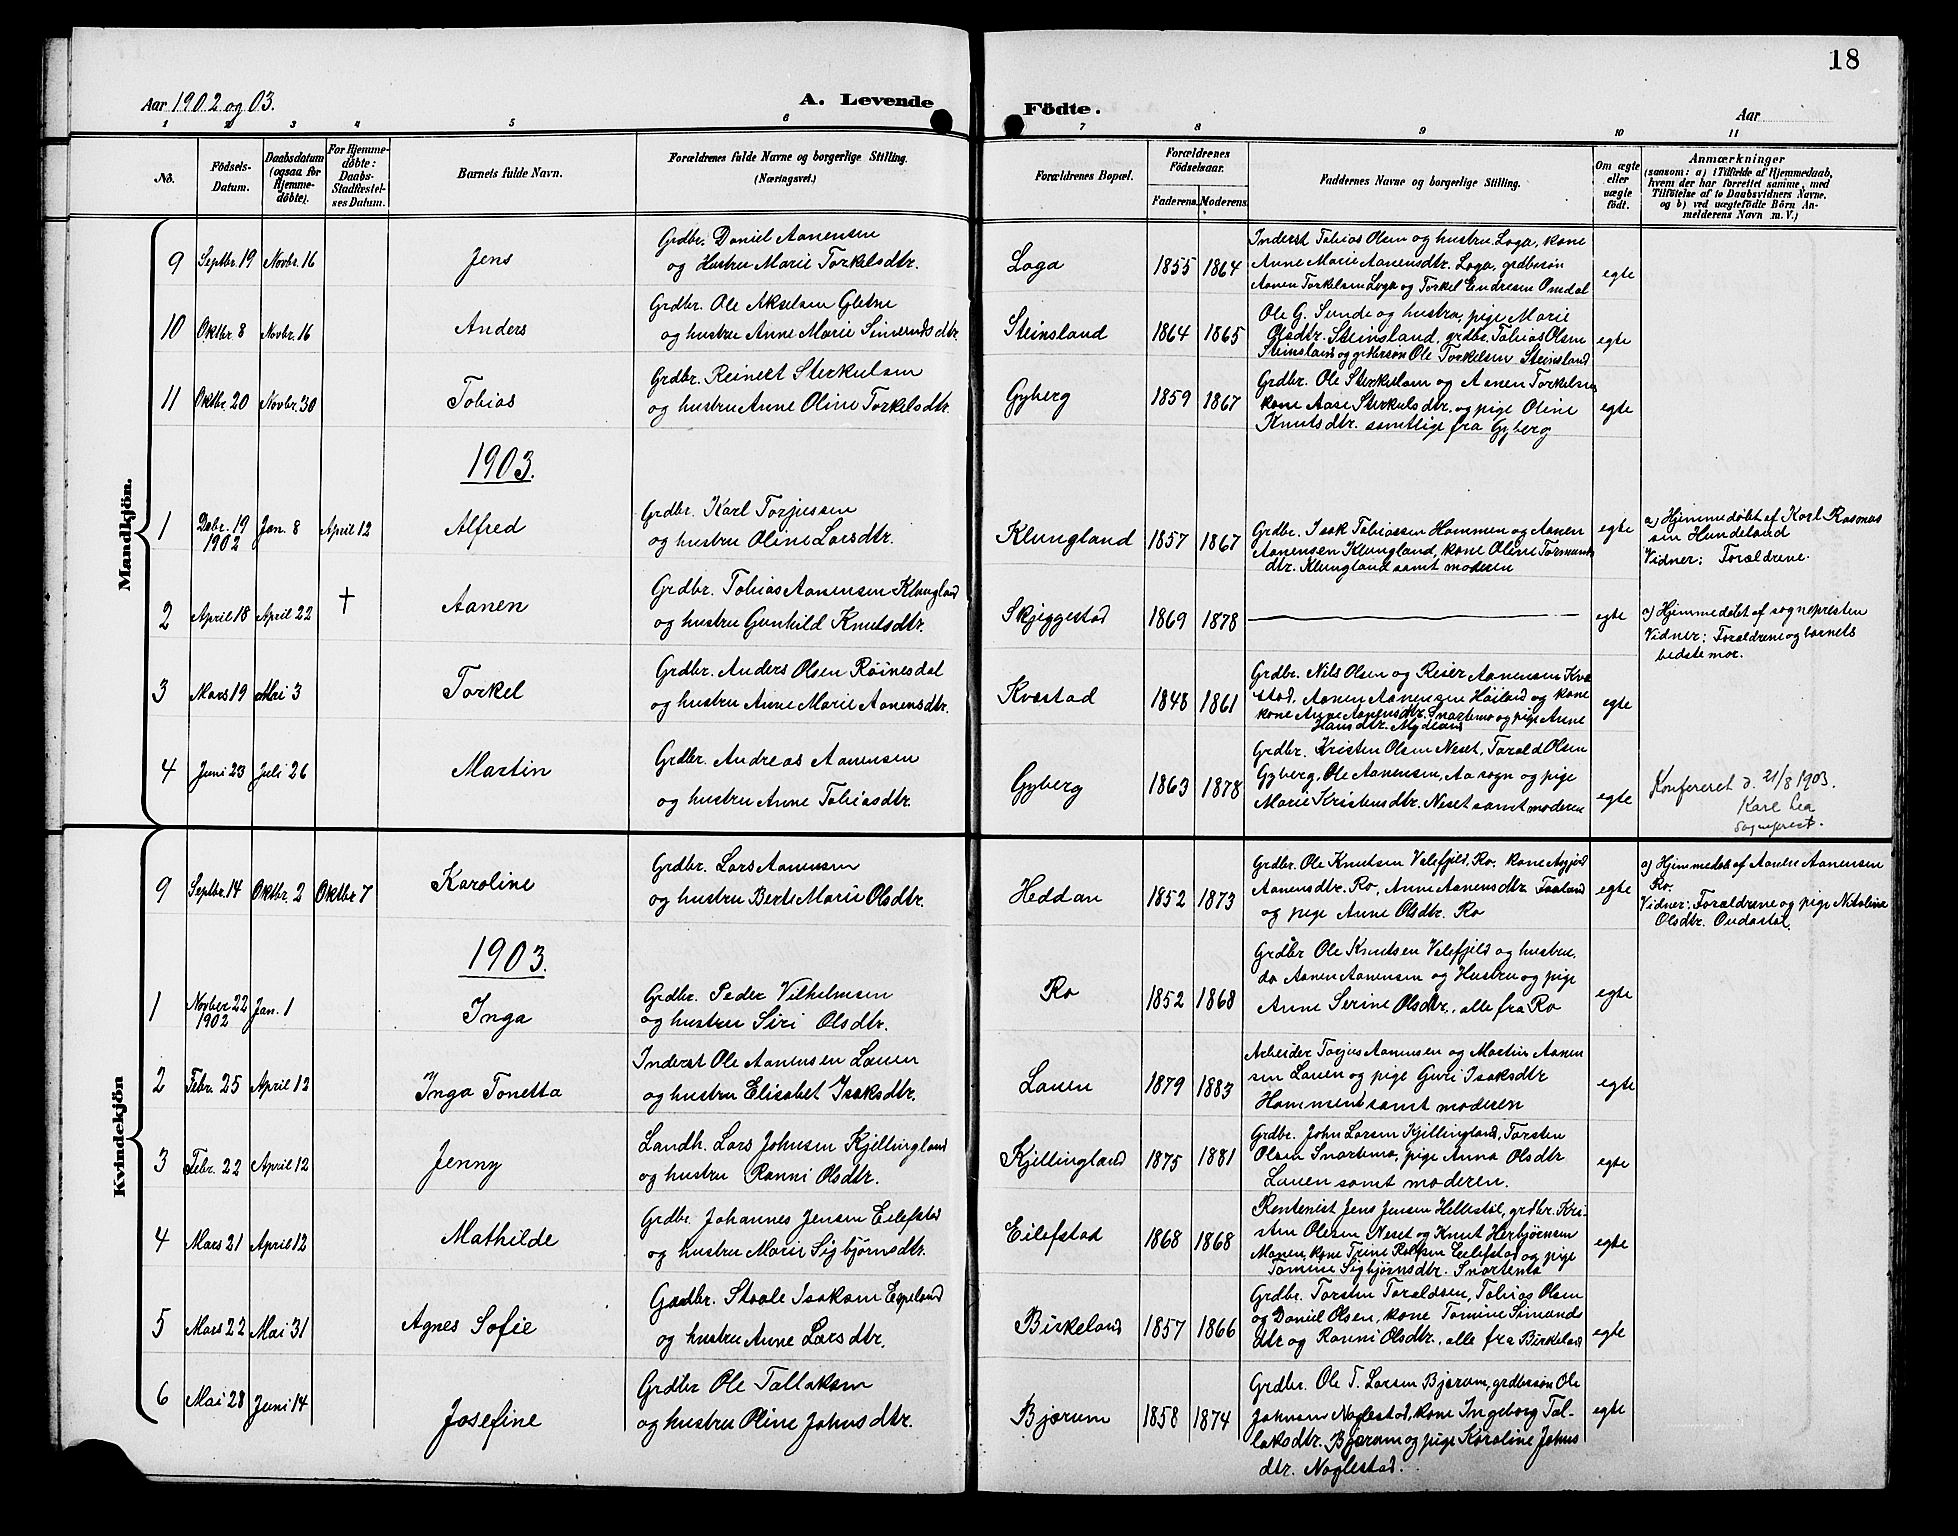 18
Aar 1902 og 03.
A. Levende Födte.
Aar
1 2 3 4 5 6 7 8 9 10 11
No.
Födsels-Datum.
Daabsdatum (ogsaa for Hjemme-döbte).
For Hjemme-döbte: Daabs-Stadfæstel-ses Datum.
Barnets fulde Navn.
Forældrenes fulde Navne og borgerlige Stilling. (Næringsvei.)
Forældrenes Bopæl.
Forældrenes Födselsaar.
Faderens. Moderens.
Faddernes Navne og borgerlige Stilling.
Om ægte eller uægte födt.
Anmærkninger
(saasom: a) i Tilfælde af Hjemmedaab,
hvem der har forrettet samme, med
Tilföielse af to Daabsvidners Navne.
og b) ved uægtefödte Börn An-
melderens Navn m. V.)
Mandkjön.
9 Septbr. 19 Novbr. 16 Jens
Grdbr. Daniel Aanensen
og Hustru Marie Torkelsdtr.
Loga 1855 1864
Inderst Tobias Olsen og hustru Loga, kone
Anne Marie Aanensdtr. Loga, grdbrsøn
Aanen Torkelsen Loga og Torkel Endresen Omdal
egte
10 Oktbr. 8 Novbr. 16 Anders
Grdbr. Ole Akselsen Gletne
og hustru Anne Marie Simondsdtr.
Steinsland 1864 1865
Ole G. Sunde og hustru, pige Marie
Olsdtr. Steinsland, grdbr. Tobias Olsen
Steinsland og grdbrsøn Ole Torkelsen Steinsland
egte
11 Oktbr. 20 Novbr. 30 Tobias
Grdbr. Reinert Sterkulsen
og hustru Anne Oline Torkelsdtr.
Gyberg 1859 1867
Grdbr. Ole Sterkulsen og Aanen Torkelsen
kone Aase Sterkulsdtr. og pige Oline
Knutsdtr. samtlige fra Gyberg
egte
1903.
1 Debr. 19 1902 Jan. 8 April 12 Alfred
Grdbr. Karl Torjussen
og hustru Oline Larsdtr.
Klungland 1857 1867
Grdbr. Isak Tobiassen Hammen og Aanen
Aanensen Klungland, kone Oline Tormunds
dtr. Klungland samt moderen
egte
a) Hjemmedøbt af Karl Rasmus
sen Hundeland
Vidner: Forældrene.
2 April 18 April 22 † Aanen
Grdbr. Tobias Aanensen Klungland
og hustru Gunhild Knutsdtr.
Skjeggestad 1869 1878
egte
a) Hjemmedøbt af sognepresten
Vidner: Forældrene og barnets
bedstemor.
3 Mars 19 Mai 3 Torkel
Grdbr. Anders Olsen Røinesdal
og hustru Anne Marie Aanensdtr.
Kvæstad 1848 1861
Grdbr. Nils Olsen og Reier Aanensen Kvæ
stad, Aanen Aanensen Høiland og kone
kone Anne Aanensdtr. Snartemo og pige Anne
Hansdtr. Mydland
egte
4 Juni 23 Juli 26 Martin
Grdbr. Andreas Aanensen
og hustru Anne Tobiasdtr.
Gyberg 1863 1878
Grdbr. Kristen Olsen Neset, Torald Olsen
Gyberg, Ole Aanensen, Aa sogn og pige
Marie Kristensdtr. Neset samt moderen
egte
Konfereret d. 21/8 1903.
Karl Lea
Sogneprest.
Kvindekjön
9 Septbr. 14 Oktbr. 2 Oktbr 7 Karoline
Grdbr. Lars Aanensen
og hustru Berte Marie Olsdtr.
Heddan 1852 1873
Grdbr. Ole Knutsen Velefjeld, Ro, kone Asgjerd
Aanensdtr. Ro, Anne Aanensdtr Faaland
og pige Anne Olsdtr. Ro
egte
a) Hjemmedøbt af Aanen Aanensen
Ro.
Vidner: Forældrene og pige Nikoline
Olsdtr. Oudastøl.
1903.
1 Novber 22 1902 Jan. 1 Inga
Grdbr. Peder Vilhelmsen
og hustru Siri Olsdtr.
Ro 1852 1868
Grdbr Ole Knutsen Velefjeld og hustru,
do Aanen Aanensen og Hustru og pige
Anne Serine Olsdtr., alle fra Ro
egte
2 Febr. 25 April 12 Inga Tonetta
Inderst Ole Aanensen Lauen
og hustru Elisabet Isaksdtr.
Lauen 1879 1883
Arbeider Torjus Aanensen og Martin Aanen
sen Lauen og pige Guri Isaksdtr
Hammen samt moderen
egte
3 Febr. 22 April 12 Jenny
Landh. Lars Johnsen Kjellingland
og hustru Ranni Olsdtr.
Kjellingland 1875 1881
Grdbr. John Larsen Kjellingland, Torsten
Olsen Snartemo, pige Anna Olsdtr
Lauen samt moderen.
egte
4 Mars 21 April 12 Mathilde
Grdbr. Johannes Jensen Eilefstad
og hustru Marie Sigbjørnsdtr.
Eilefstad 1868 1868
Rentenist Jens Jensen Hellestøl, grdbr. Kri-
sten Olsen Neset og Knut Herbjørnsen
Monen, kone Trine Rolfsen Eilefstad og pige
Tomine Sigbjørnsdtr. Snartemo
egte
5 Mars 22 Mai 31 Agnes Sofie
Grdbr. Staale Isaksen Espeland
og hustru Anne Larsdtr.
Birkeland 1857 1866
Grdbr. Torsten Toraldsen, Tobias Olsen
og Daniel Olsen, kone Tomine Simonds
dtr og Ranni Olsdtr., alle fra Birkeland
egte
6 Mai 28 Juni 14 Josefine
Grdbr Ole Tallaksen
og hustru Oline Johnsdtr.
Bjærum 1858 1874
Grdbr. Ole T. Larsen Bjærum, grdbrsøn Ole
Johnsen Naglestad, kone Ingeborg Tal-
laksdtr. Bjærum og pige Karoline Johns
dtr. Naglestad.
egte